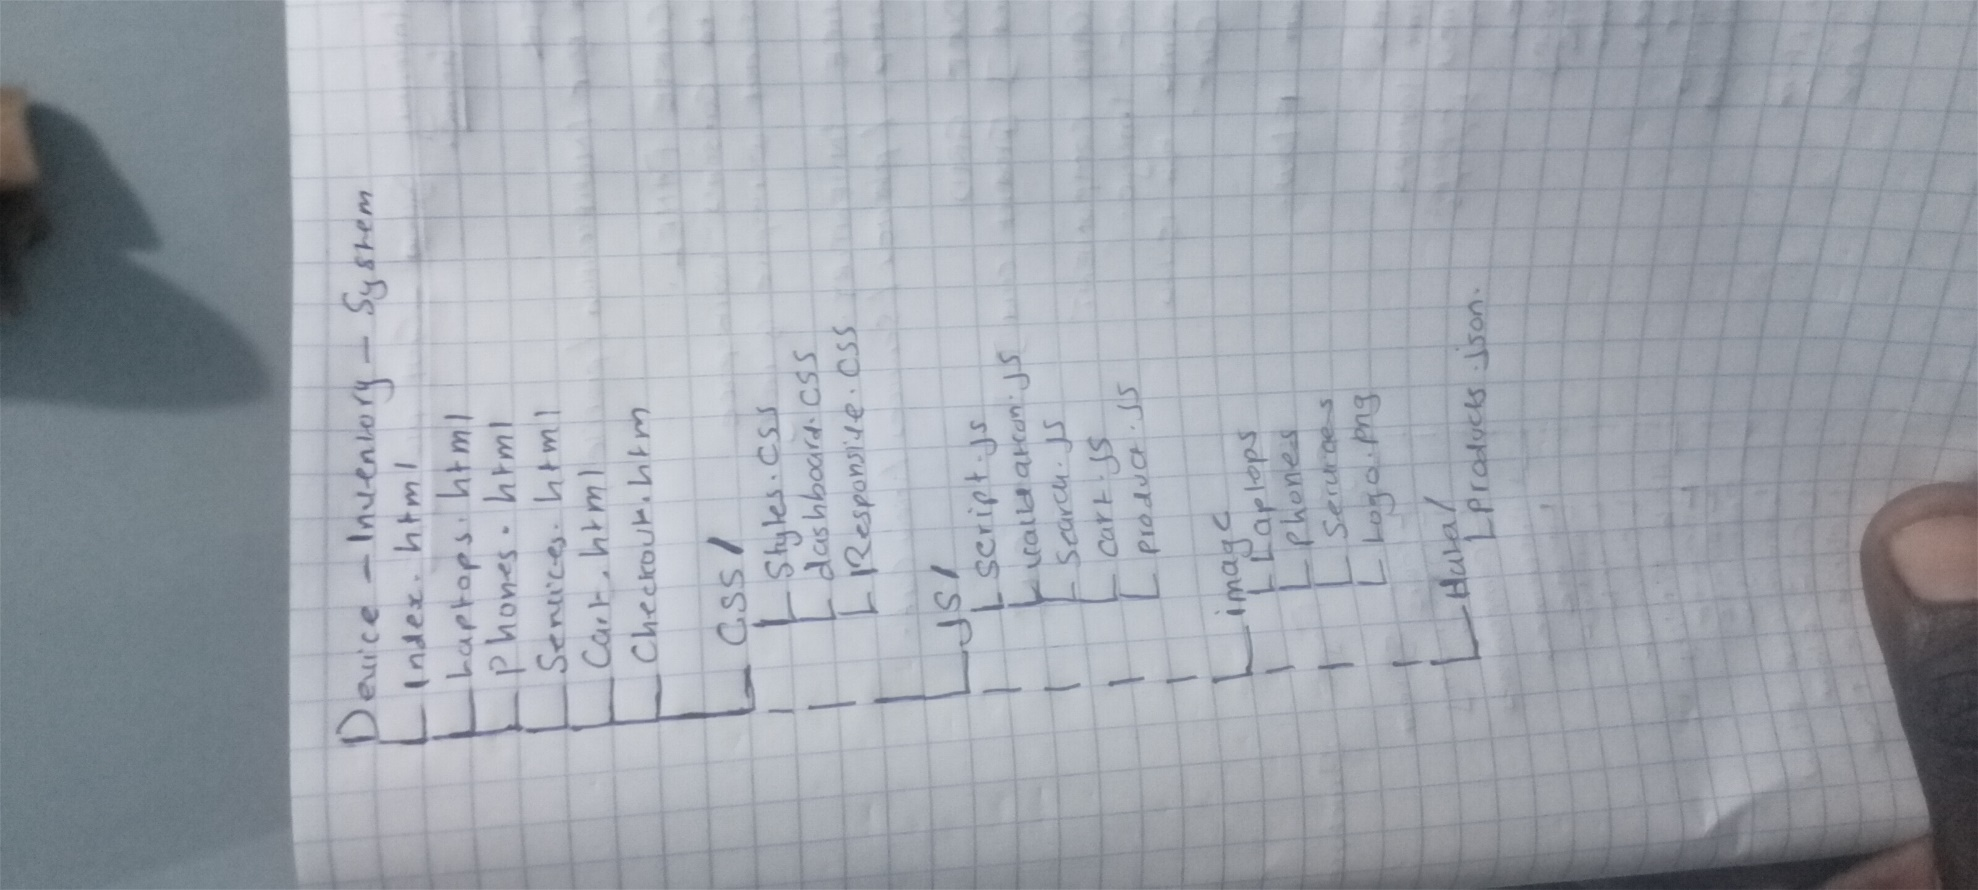 Device - Inventory - System
Index.html
Laptops.html
Phones.html
Services.html
Cart.html
Checkout.htm
CSS/
Styles.css
dashboard.css
Responsive.css
JS/
script.js
validation.js
search.js
cart.js
product.js
image
Laptops
phones
Services
Logo.png
products.json.